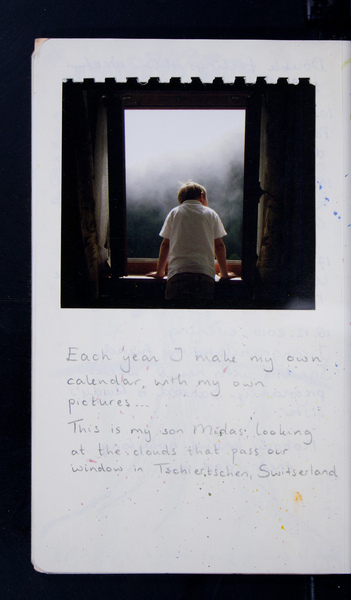 Each year I make my own
calendar, with my own
pictures...
This is my son Midas, looking
at the clouds that pass our
window in Tschiertschen, Switserland